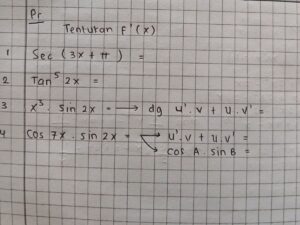 Pr
Tentukan F'(x)
1 Sec (3x + π) =
2 Tan⁵ 2x =
3 x³ . Sin 2x = → dg u'.v + u.v' =
4 Cos 7x . sin 2x = → u'.v + u.v' =
→ cos A . sin B =